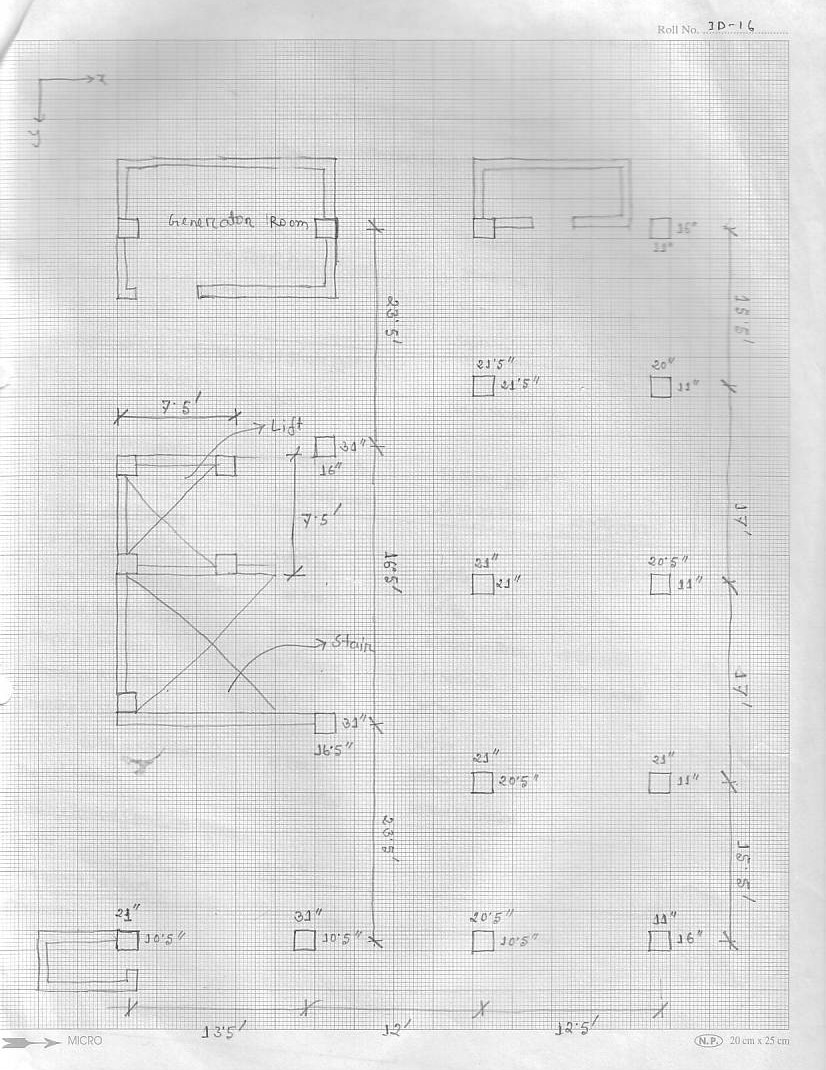 Roll No. JD-16
x
y
Generator Room
16"
11"
23.5'
15.5'
21.5"
21.5"
20"
11"
7.5'
Lift
31"
16"
7.5'
17'
16.5'
21"
21"
20.5"
11"
Stair
17'
31"
16.5"
21"
20.5"
21"
11"
23.5'
15.5'
21"
10.5"
31"
10.5"
20.5"
10.5"
11"
16"
13.5'
12'
12.5'
MICRO
N.P. 20 cm x 25 cm